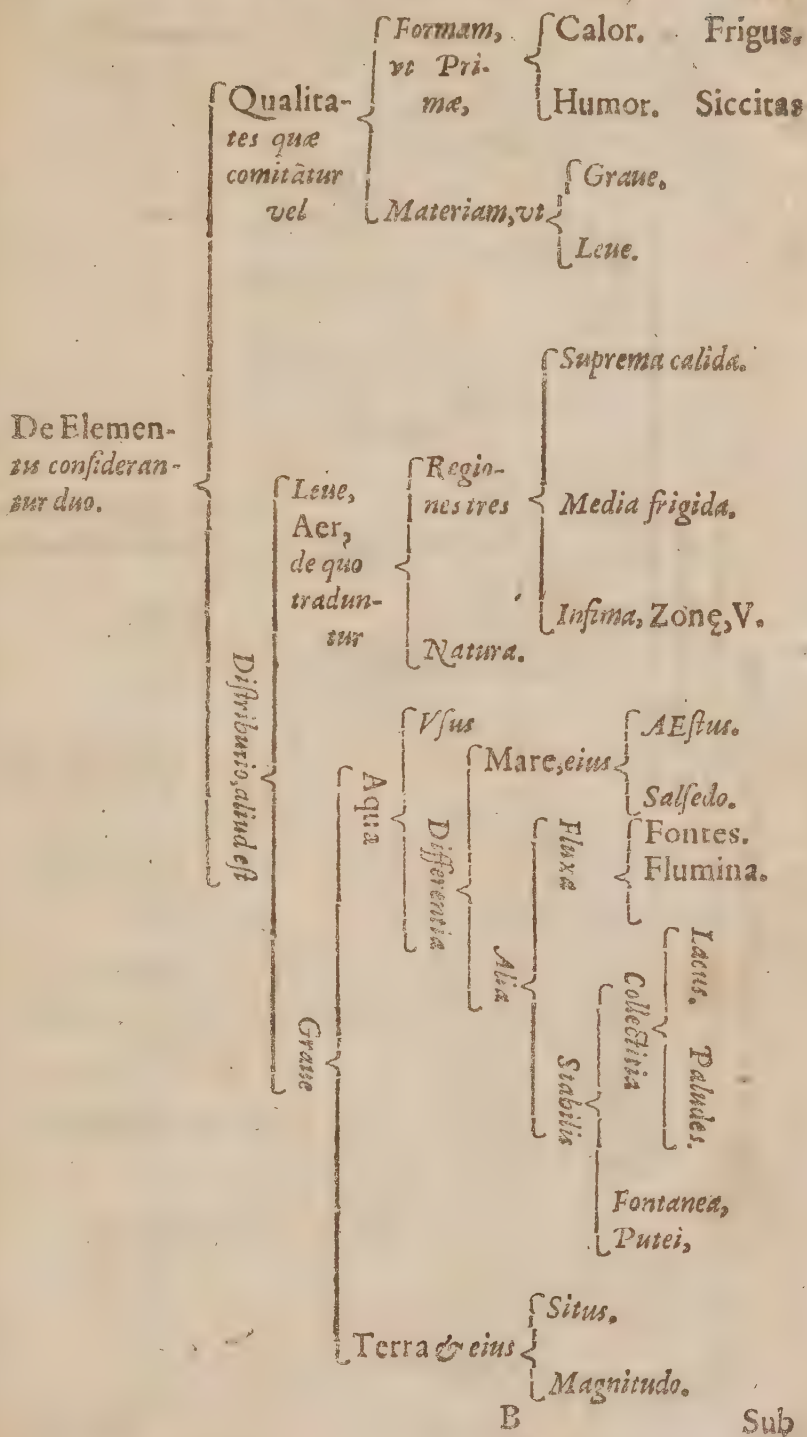 De Elemen-
tis consideran-
tur duo.
Qualita-
tes quæ
comitātur
vel
Formam,
vt Pri-
mæ,
Calor. Frigus.
Humor. Siccitas
Materiam, vt
Graue.
Leue.
Distributio, aliud est
Leue,
Aer,
de quo
tradun-
tur
Regio-
nes tres
Suprema calida.
Media frigida.
Infima, Zonę, V.
Natura.
Graue
Aqua
Vsus
Differentia
Mare, eius
AEstus.
Salsedo.
Alia
Fluxa
Fontes.
Flumina.
Stabilis
Collectitia
Lacus. Paludes.
Fontanea,
Putei,
Terra & eius
Situs.
Magnitudo.
B Sub